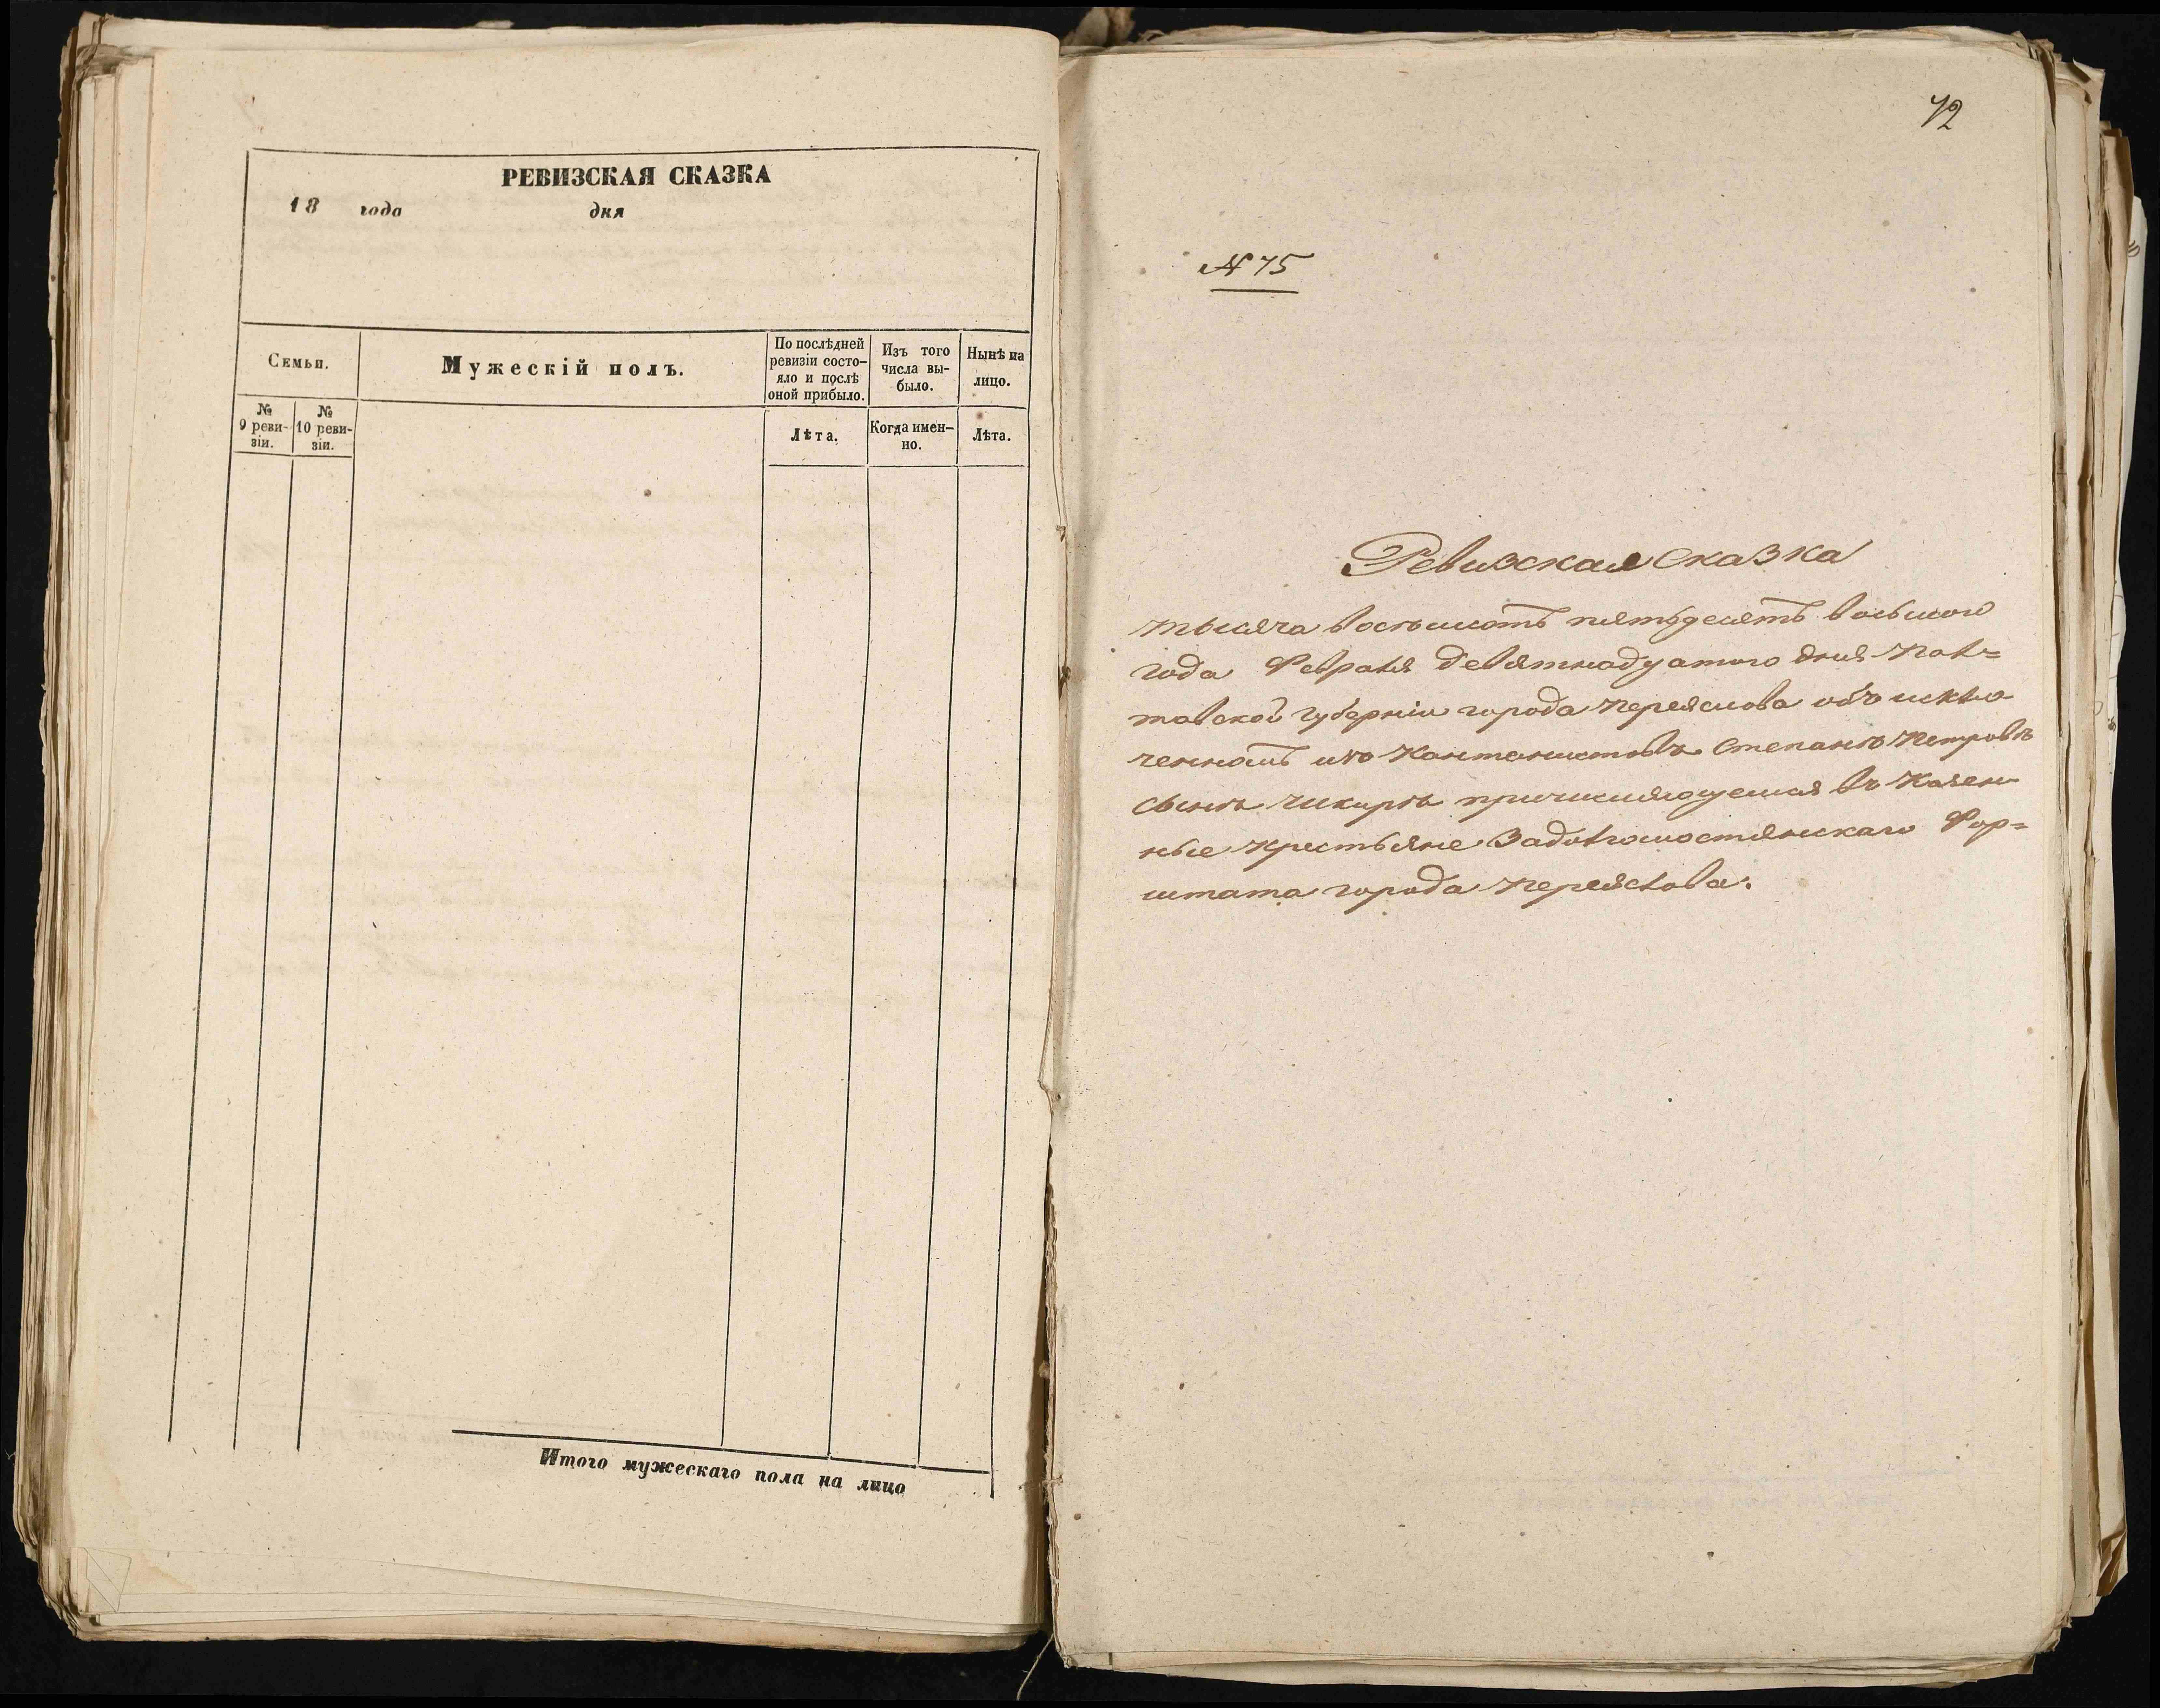 РЕВИЗСКАЯ СКАЗКА
18 года дня
Семьи.
Мужескій полъ.
По послѣдней ревизіи состо-
яло и послѣ
оной прибыло.
Изъ того
числа вы-
было.
Нынѣ на
лицо.
№
9 реви-
зіи.
№
10 реви-
зіи.
Лѣта.
Когда имен-
но.
Лѣта.
Итого мужескаго пола на лицо
72
№ 75
Ревизская Сказка
тысяча восемьсотъ пятьдесятъ восьмого
года Февраля девятнадцатого дня Пол=
тавской губерніи города Переяслова объ исклю
ченномъ изъ Кантонистовъ Степанъ Петровъ
сынъ Чикиръ причисляющемся въ Казен
ные крестьяне Задолгомостянскаго Фор=
штата города Переяслова.